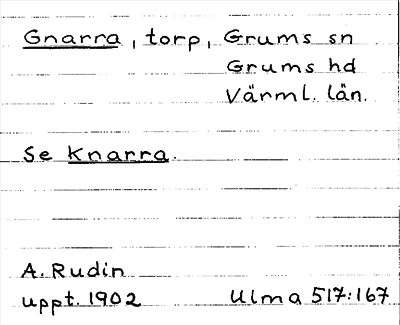 Gnarra, torp, Grums sn
Grums hd
Värml. län.
Se Knarra.
A. Rudin
uppt. 1902 Ulma 517:167